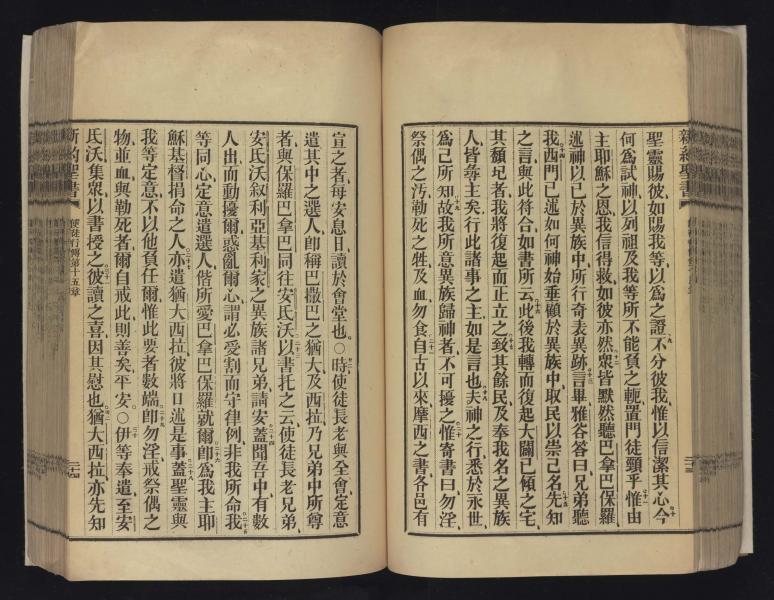 新約聖書
聖靈賜彼如賜我等以爲之證、九不分彼我、惟以信潔其心、十今
何爲試神、以列祖及我等所不能負之軛、置門徒頸乎、十一惟由
主耶穌之恩、我信得救、如彼亦然、十二眾皆默然、聽巴拿巴保羅
述神以已於異族中所行奇表異跡、十三言畢、雅谷答曰、兄弟聽
我、十四西門已述如何神始垂顧於異族中、取民以崇己名、十五先知
之言、與此符合、如書所云、十六此後我轉而復起大闢已傾之宅、
其頹圮者、我將復起而止立之、十七致其餘民、及奉我名之異族
人、皆尋主矣、行此諸事之主、如是言也、十八夫神之行、悉於永世
爲己所知、十九故我所意、異族歸神者、不可擾之、二十惟寄書曰、勿淫、
祭偶之污、勒死之牲、及血勿食、二十一自古以來、摩西之書、各邑有
宣之者、每安息日、讀於會堂也。○二十二時使徒長老與全會定意
遣其中之選人、卽稱巴撒巴之猶大、及西拉、乃兄弟中所尊
者、與保羅巴拿巴同往安氏沃、二十三以書托之云、使徒長老兄弟、
安氏沃叙利亞基利家之異族諸兄弟請安、二十四蓋聞吾中有數
人出而動擾爾、惑亂爾心、謂必受割而守律例、非我所命、二十五我
等同心定意、遣選人偕所愛巴拿巴保羅就爾、二十六卽爲我主耶
穌基督捐命之人、二十七亦遣猶大西拉、彼將口述是事、二十八蓋聖靈與
我等定意、不以他負任爾、惟此要者數端、二十九卽勿淫、戒祭偶之
物、並血、與勒死者、爾自戒此則善矣、平安。○三十伊等奉遣、至安
氏沃、集眾以書授之、三十一彼讀之喜、因其慰也、三十二猶大西拉、亦先知
新約聖書
使徒行傳第十五章